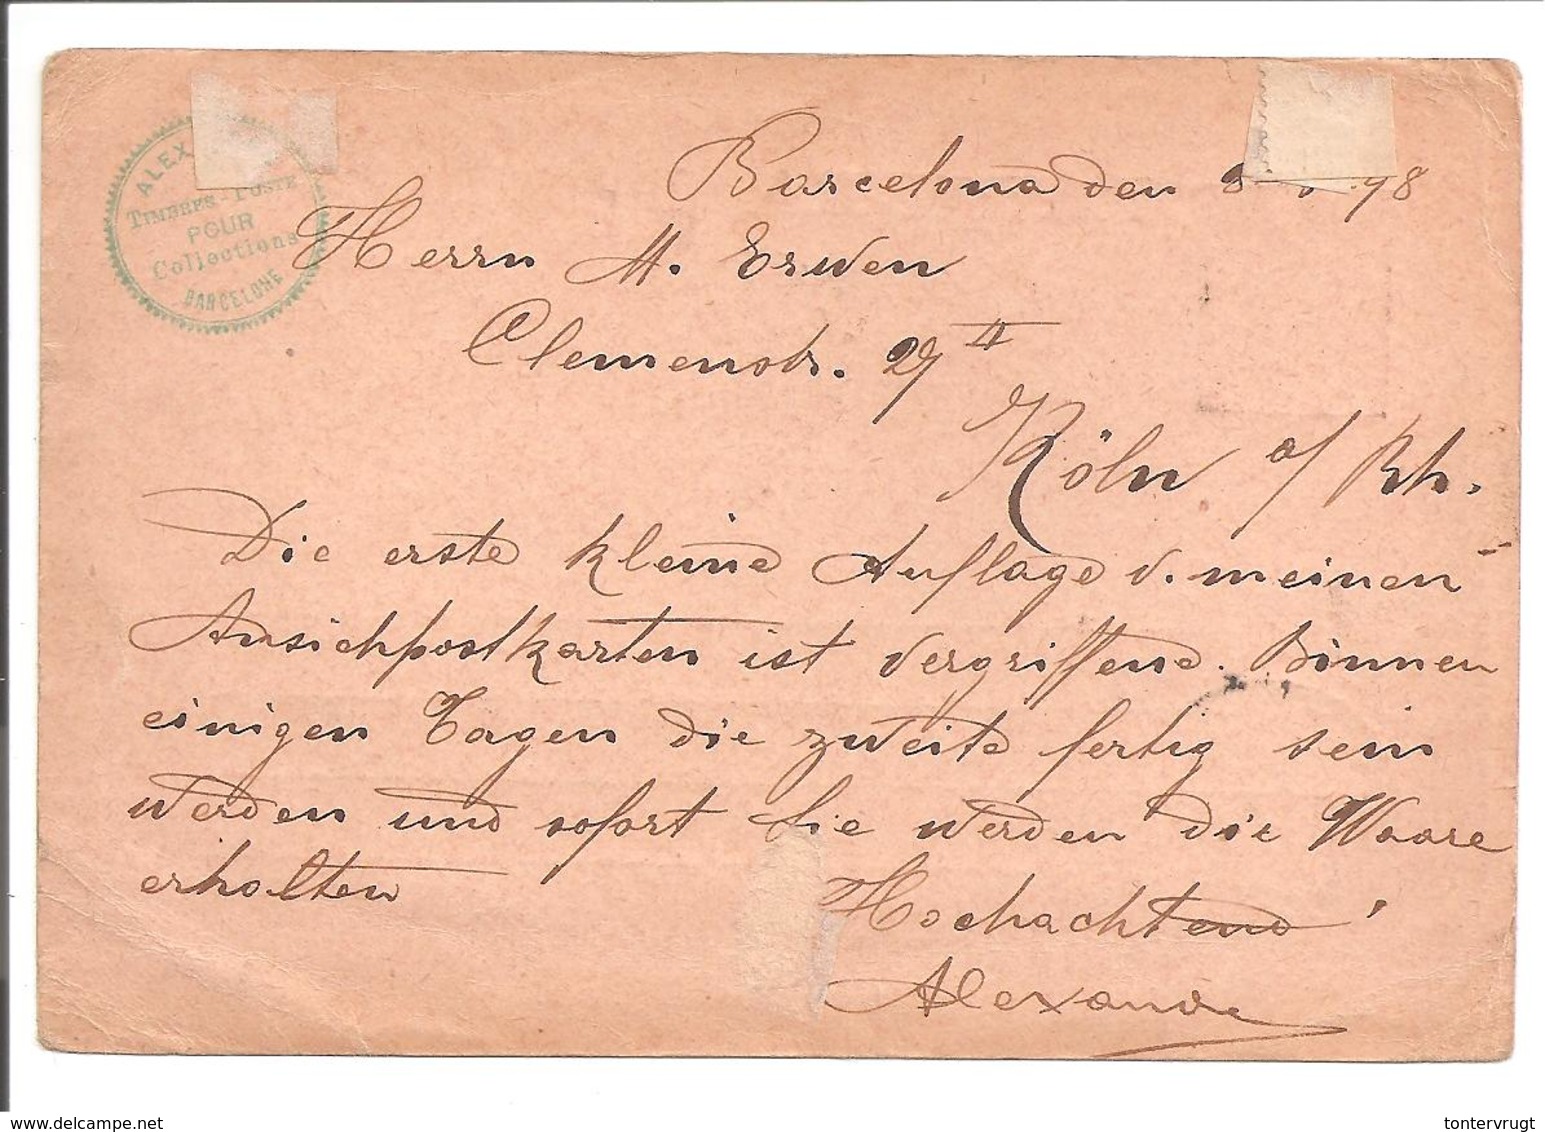 ALEX
TIMBRES-POSTE
POUR
Collections
BARCELONE
Barcelona den 98
Herrn M. Erwen
Clemenstr. 27 II
Köln a/ Rh.
Die erste kleine Auflage v. meinen
Ansichpostkarten ist vergriffene. Binnen
einigen Tagen die zweite fertig sein
werden und sofort Sie werden die Waare
erholten
Hochachtend
Alexandre
delcampe.net
tontervrugt